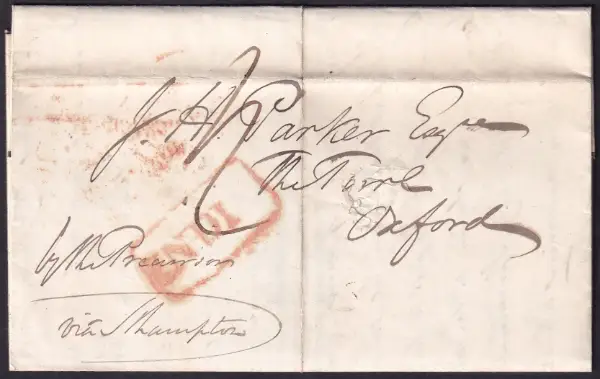 J. H. Parker Esqre
The Turl
Oxford
by the Precursor
via S hampton
INDI